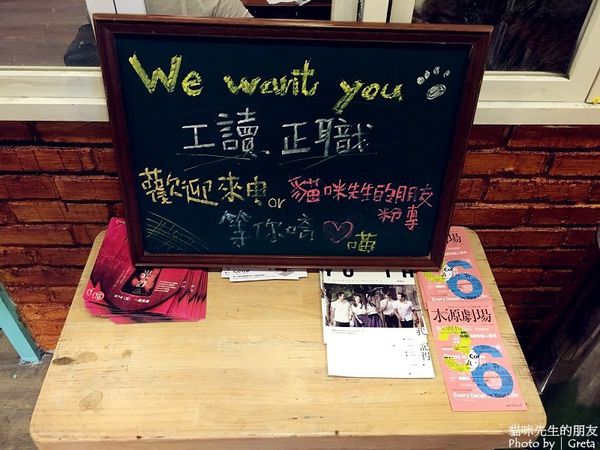 We want you
工讀、正職
歡迎來電 or 貓咪先生的朋友
粉專
等你唷♡喵
YOUTH
犯
記得
木源劇場
36
Every
木源劇場
36
貓咪先生的朋友
Photo by | Greta